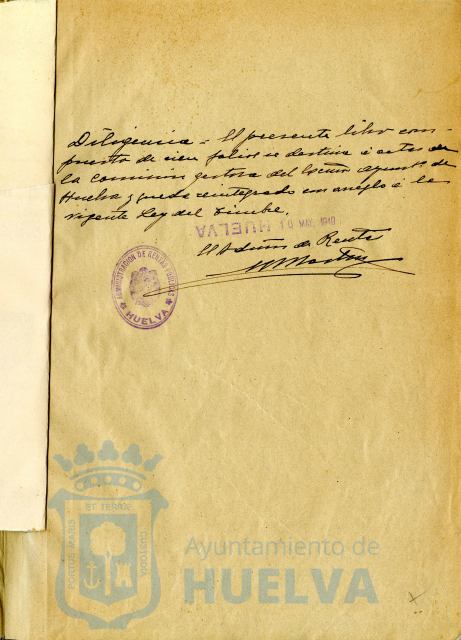 Diligencia = El presente libro com-
puesto de cien folios se destina a actas de
la comision gestora del Excmo Ayunto de
Huelva y queda reintegrado con arreglo a la
vigente Ley del Timbre.
HUELVA 10 MAY. 1940
El Admor de Rentas
ADMINISTRACION DE RENTAS PUBLICAS
HUELVA
PORTUS MARIS ET TERRAE CUSTODIA
Ayuntamiento de
HUELVA